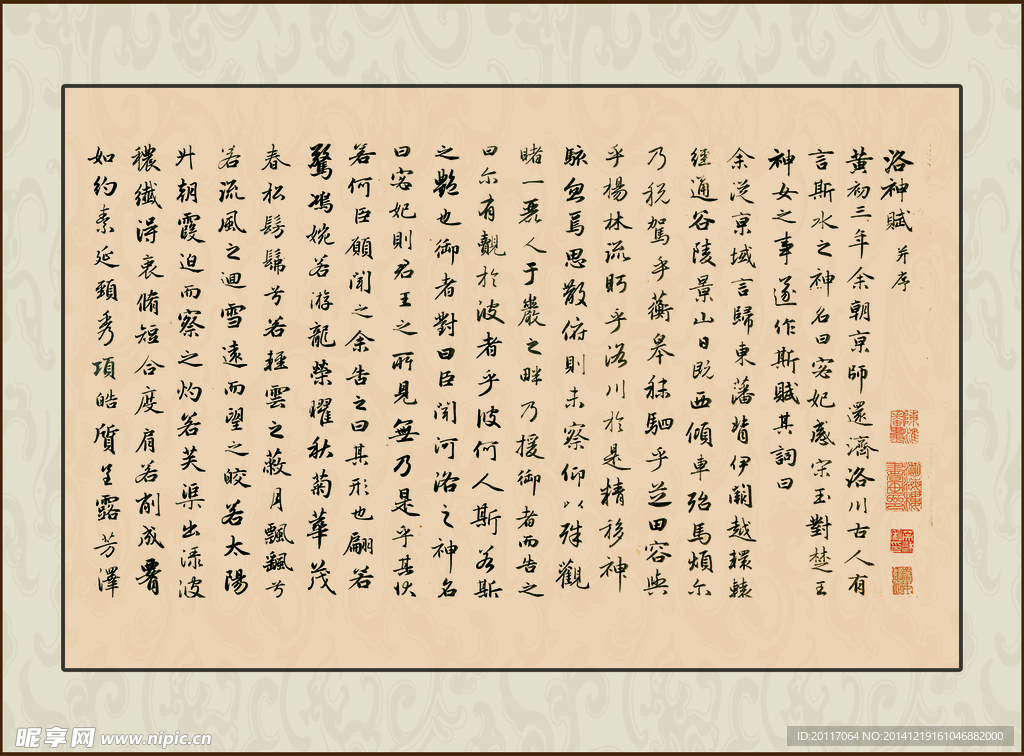 洛神賦 并序
黃初三年余朝京師還濟洛川古人有
言斯水之神名曰宓妃感宋玉對楚王
神女之事遂作斯賦其詞曰
余從京域言歸東藩背伊闕越轘轅
經通谷陵景山日既西傾車殆馬煩尔
乃稅駕乎蘅皋秣駟乎芝田容與
乎楊林流眄乎洛川於是精移神
駭忽焉思散俯則未察仰以殊觀
睹一麗人于巖之畔乃援御者而告之
曰尔有覿於彼者乎彼何人斯若斯
之艷也御者對曰臣聞河洛之神名
曰宓妃則君王之所見無乃是乎其狀
若何臣願聞之余告之曰其形也翩若
驚鴻婉若游龍榮曜秋菊華茂
春松髣髴兮若輕雲之蔽月飄飄兮
若流風之迴雪遠而望之皎若太陽
升朝霞迫而察之灼若芙渠出淥波
穠纖得衷脩短合度肩若削成腰
如約素延頸秀項皓質呈露芳澤
昵享网 www.nipic.cn
ID:20117064 NO:20141219161046882000